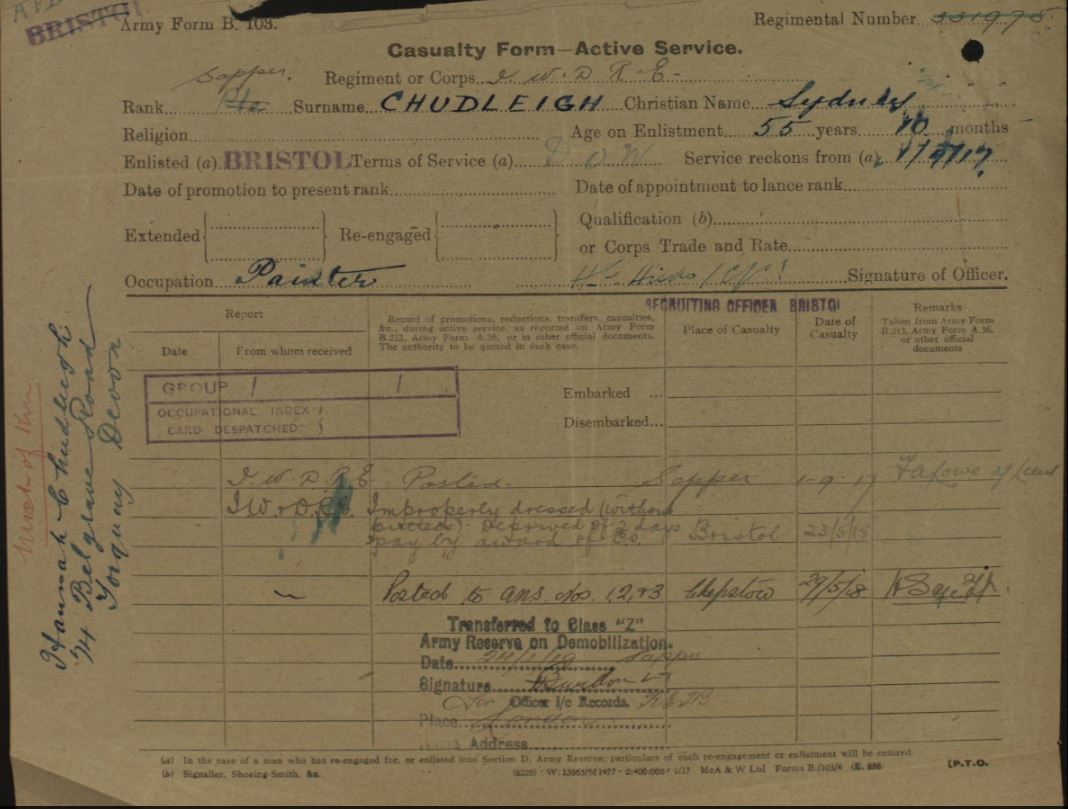 BRISTOL
Army Form B. 103.
Regimental Number
Casualty Form—Active Service.
Sapper. Regiment or Corps I. W. D R. E.
Rank Pte Surname CHUDLEIGH Christian Name Sydney
Religion
Age on Enlistment 55 years 10 months
Enlisted (a) BRISTOL Terms of Service (a) D O W Service reckons from (a)
Date of promotion to present rank
Date of appointment to lance rank
Extended
Re-engaged
Qualification (b)
or Corps Trade and Rate
Occupation Painter
Signature of Officer.
RECRUITING OFFICER BRISTOL
Report
Date
From whom received
Record of promotions, reductions, transfers, casualties,
&c., during active service, as reported on Army Form
B.213, Army Form A.36, or in other official documents.
The authority to be quoted in each case.
Place of Casualty
Date of
Casualty
Remarks
Taken from Army Form
B.213, Army Form A.36,
or other official
documents
GROUP 1 1
OCCUPATIONAL INDEX
CARD DESPATCHED
Embarked ...
Disembarked...
I. W. D R E Posted. Sapper 1-9-17
I.W. & D.R.E. Improperly dressed (without
puttees). Deprived of 2 days
pay by award of Co. Bristol 23/5/18
Posted to ans. d/os. 1,2,+3 Chepstow 29/5/18
Transferred to Class "Z"
Army Reserve on Demobilization.
Date Sapper
Signature
for Officer i/c Records.
Place London
Address
Next of Kin
Hannah Chudleigh
74 Belgrave Road
Torquay Devon
(a) In the case of a man who has re-engaged for, or enlisted into Section D, Army Reserve, particulars of such re-engagement or enlistment will be entered.
(b) Signaller, Shoeing-Smith, &c.
McA & W Ltd Forms B./103/4
[P.T.O.